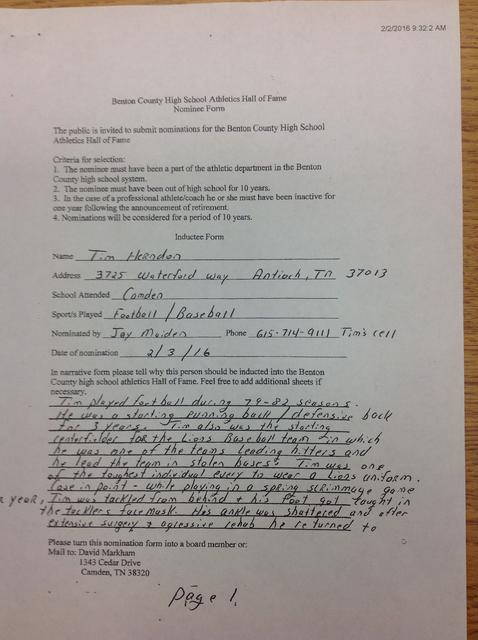 2/2/2016 9:32:2 AM
Benton County High School Athletics Hall of Fame
Nominee Form
The public is invited to submit nominations for the Benton County High School
Athletics Hall of Fame
Criteria for selection:
1. The nominee must have been a part of the athletic department in the Benton
County high school system.
2. The nominee must have been out of high school for 10 years.
3. In the case of a professional athlete/coach he or she must have been inactive for
one year following the announcement of retirement.
4. Nominations will be considered for a period of 10 years.
Inductee Form
Name Tim Herndon
Address 3725 Waterford way Antioch, TN 37013
School Attended Camden
Sport/s Played Football / Baseball
Nominated by Jay Maiden Phone 615-714-9111 Tim's cell
Date of nomination 2/3/16
In narrative form please tell why this person should be inducted into the Benton
County high school athletics Hall of Fame. Feel free to add additional sheets if
necessary.
Tim played football during 79-82 seasons.
He was a starting running back / defensive back
for 3 years. Tim also was the starting
centerfielder for the Lions Baseball team in which
he was one of the teams leading hitters and
he lead the team in stolen bases. Tim was one
of the toughest individual every to wear a Lions uniform.
Case in point - while playing in a spring scrimmage game
year, Tim was tackled from behind & his foot got caught in
the tacklers facemask. His ankle was shattered and after
extensive surgery & agressive rehab he returned to
Please turn this nomination form into a board member or:
Mail to: David Markham
1343 Cedar Drive
Camden, TN 38320
Page 1.